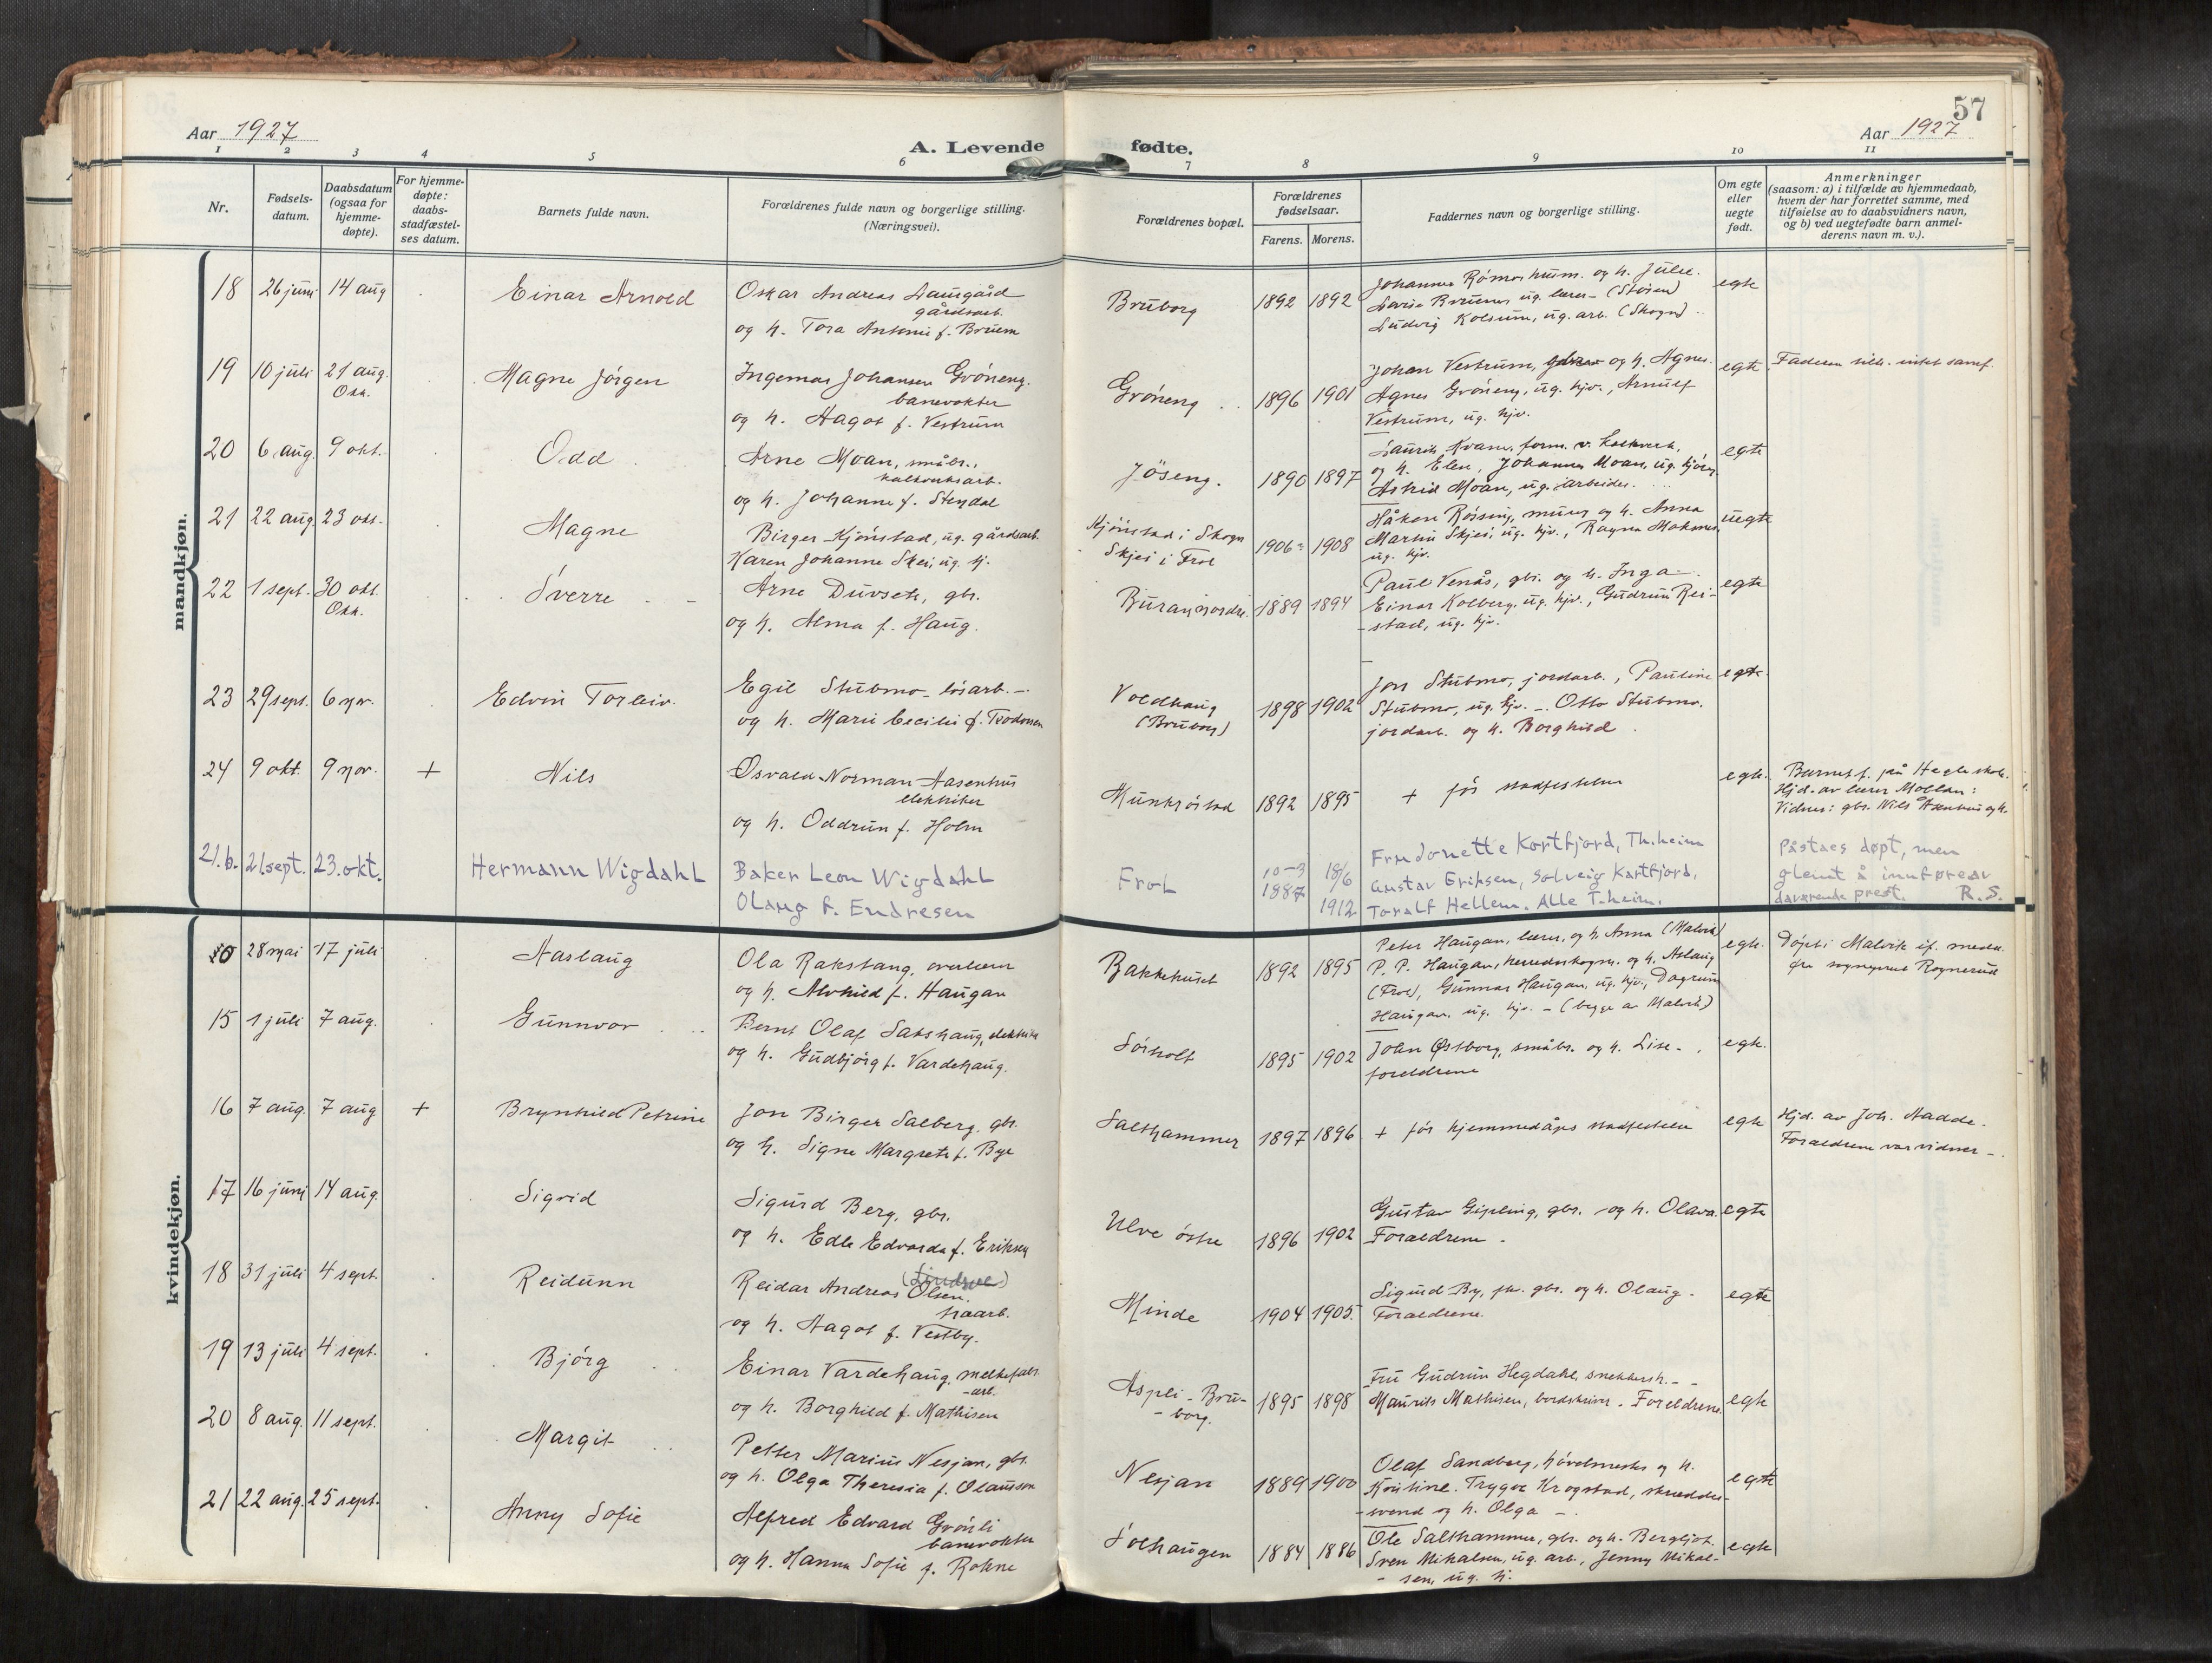 57
Aar 1927
A. Levende fødte.
Aar 1927
1 2 3 4 5 6 7 8 9 10 11
Nr.
Fødsels-
datum.
Daabsdatum
(ogsaa for
hjemme-
døpte).
For hjemme-
døpte:
daabs-
stadfæstel-
ses datum.
Barnets fulde navn.
Forældrenes fulde navn og borgerlige stilling.
(Næringsvei).
Forældrenes bopæl.
Forældrenes
fødselsaar.
Farens. Morens.
Faddernes navn og borgerlige stilling.
Om egte
eller
uegte
født.
Anmerkninger
(saasom: a) i tilfælde av hjemmedaab,
hvem der har forrettet samme, med
tilføielse av to daabsvidners navn,
og b) ved uegtefødte barn anmel-
derens navn m. v.).
mandkjøn.
18 26 juni 14 aug Einar Arnold
Oskar Andreas
gårdsarb.
og h. Tora Antonie f. Bruem
Bruborg 1892 1892
Johannes Rømo, husm. og h. Julie.
Ludvig Kolsum, ug. arb. (Skogn)
egte
19 10 juli 21 aug. Magne Jörgen
Okk.
Ingemar Johansen Gröneng.
banevokter
og h. Aagot f. Vestrum
Gröneng 1896 1901
Johan Vestrum, og h. Agnes.
Agnes Gröneng, ug. hjv., Arnulf
Vestrum, ug. hjv.
egte
20 6 aug. 9 okt. Odd
Arne Moan, småbr.,
kalkverksarb.
og h. Johanne f. Stendal
Jöseng. 1890 1897
Laurits Kvam, form. v. kalkverk,
og h. Elen, Johannes Moan, ug. hjörn.
Astrid Moan, ug. arbeider.
egte
21 22 aug 23 okt. Magne
Birger Kjönstad, ug. gårdsarb.
Karen Johanne Skei, ug. hj.
Kjönstad i Skogn
Skjei i Frol
1906 1908
Håkon Røising, murer og h. Anna
Martin Skjei, ug. hjv., Ragna
ug. hjv.
uegte
22 1 sept. 30 okt. Sverre
Okk.
Arne Duvseth, gbr.
og h. Alma f. Haug.
Buran nordre. 1889 1894
Paul Venås, gbr. og h. Inga
Einar Kolberg, ug. hjv., Gudrun Rei-
-stad, ug. hjv.
egte
23 29 sept. 6 nov. Edvin Torleiv.
Egil Stubmo, lösarb.
og h. Marie Cecilie f. Teodorsen
Voldhaug
(Bruborg)
1898 1902
Jon Stubmo, jordarb., Pauline
Stubmo, ug. hjv. - Otto Stubmo,
jordarb. og h. Borghild
egte.
24 9 okt. 9 nov. + Nils
Osvald Norman Aasenhus
elektriker
og h. Oddrun f. Holm
Munkröstad 1892 1895
+ för stadfestelsen
egte.
Barnet f. på Hegle skole.
Hjd. av lærer Mollan:
Vidner: gbr. Nils Aasenhus og h.
21.b. 21 sept. 23. okt. Hermann Wigdahl
Baker Leon Wigdahl
Olaug f. Endresen
Frol
10-3
1887
18/6
1912
Fru Jonette Kortfjord, Th.heim
Gustav Eriksen, Solveig Kortfjord,
Toralf Hellem. Alle T.heim.
påstaes døpt, men
glemt å innføre av
daværende prest. R.S.
kvindekjøn.
10 28 mai 17 juli Aaslaug
Ola Rakstang, overlærer
og h. Alvhild f. Haugan
Bakkehuset 1892 1895
Peter Haugan, lærer, og h. Anna (Malvik)
P. P. Haugan, herredsskogm. og h. Aslaug
(Frol), Gunnar Haugan, ug. hjv., Dagrun
Haugan, ug. hjv. - (begge av Malvik)
egte.
Döpt i Malvik if. medd.
fra sogneprest Rognerud
15 1 juli 7 aug. Gunnvor
Bernt Olaf Sakshaug, elektriker
og h. Gudbjörg f. Vardehaug.
Sörholt 1895 1902
John Østborg, småbr. og h. Lise -
foreldrene
egte.
16 7 aug. 7 aug + Brynhild Petrine
Jon Birger Salberg, gbr.
og h. Signe Margrete f. Bye
Salthammer 1897 1896
+ för hjemmedåps stadfestelse
egte
Hjd. av Joh. Aadde.
Foreldrene var vidner -
17 16 juni 14 aug. Sigrid
Sigurd Berg, gbr.
og h. Edle Edvarda f. Eriksen
Ulve östre 1896 1902
Gustav Gipling, gbr. og h. Olava.
Foreldrene -
egte
18 31 juli 4 sept. Reidunn
Reidar Andreas Olsen.
og h. Aagot f. Vestby.
Minde 1904 1905.
Sigurd By, gbr. og h. Olaug -
Foreldrene.
egte
19 13 juli 4 sept. Bjórg
Einar Vardehaug, melkefabr.
-arb.
og h. Borghild f. Mathisen
Aspli - Bru-
-borg.
1895 1898
Fru Gudrun Hegdahl, snekkerh. -
Maurits Mathisen, bordskriver. Foreldrene.
egte
20 8 aug. 11 sept. Margit
Petter Marius Nesjan, gbr.
og h. Olga Theresia f. Olausson
Nesjan 1889 1900
Olaf Sandberg, hövelmester og h.
Kristine. Trygve Krogstad, skredder-
-svend og h. Olga -
egte
21 22 aug. 25 sept. Anny Sofie
Alfred Edvard Grönli
banevokter
og h. Hanna Sofie f. Rokne
Solhaugen 1884 1886
Ole Salthammer, gbr. og h. Bergljot.
Sven Mikalsen, ug. arb., Jenny Mikal-
-sen, ug. hj.
egte